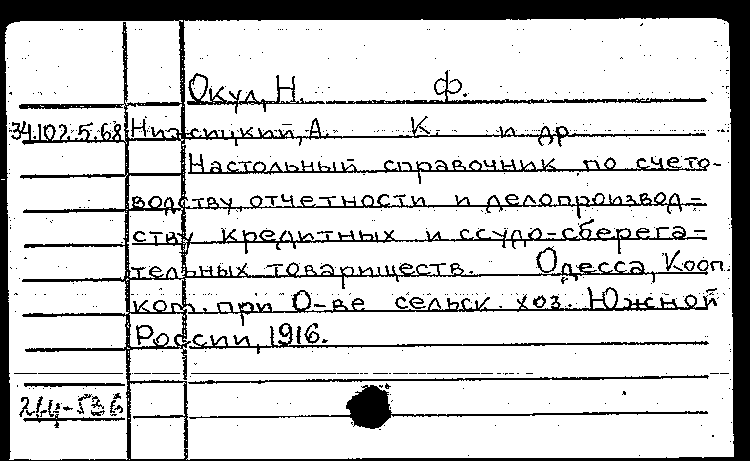 Окул, Н. Ф.
34.102.5.68 Низсицкий, А. К. и др.
Настольный справочник по счето-
водству, отчетности и делопроизвод-
ству кредитных и ссудо-сберега-
тельных товариществ. Одесса, Кооп.
ком. при О-ве сельск. хоз. Южной
России, 1916.
214-536